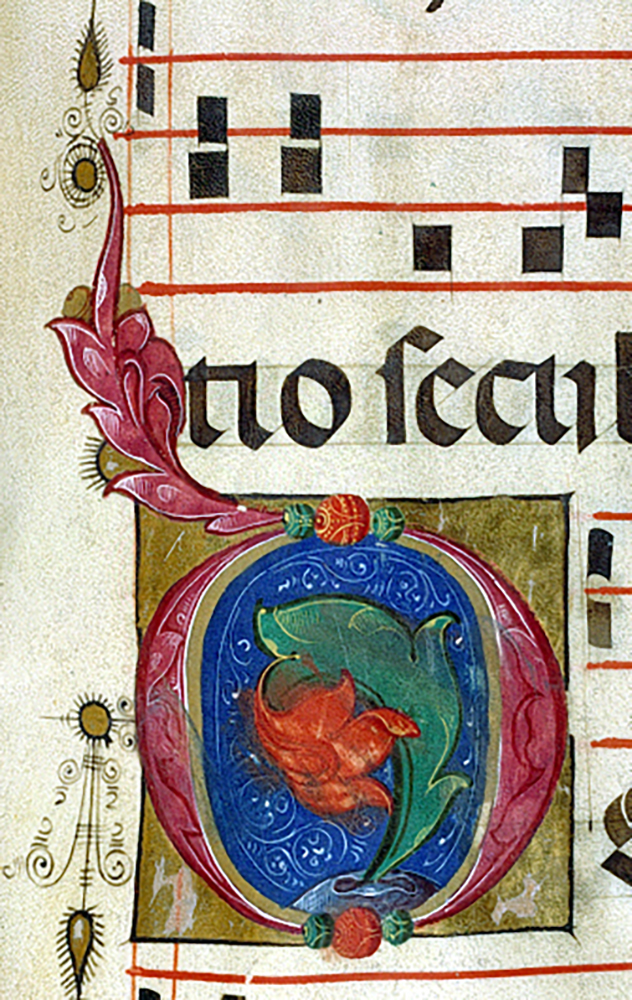 tio secul
O